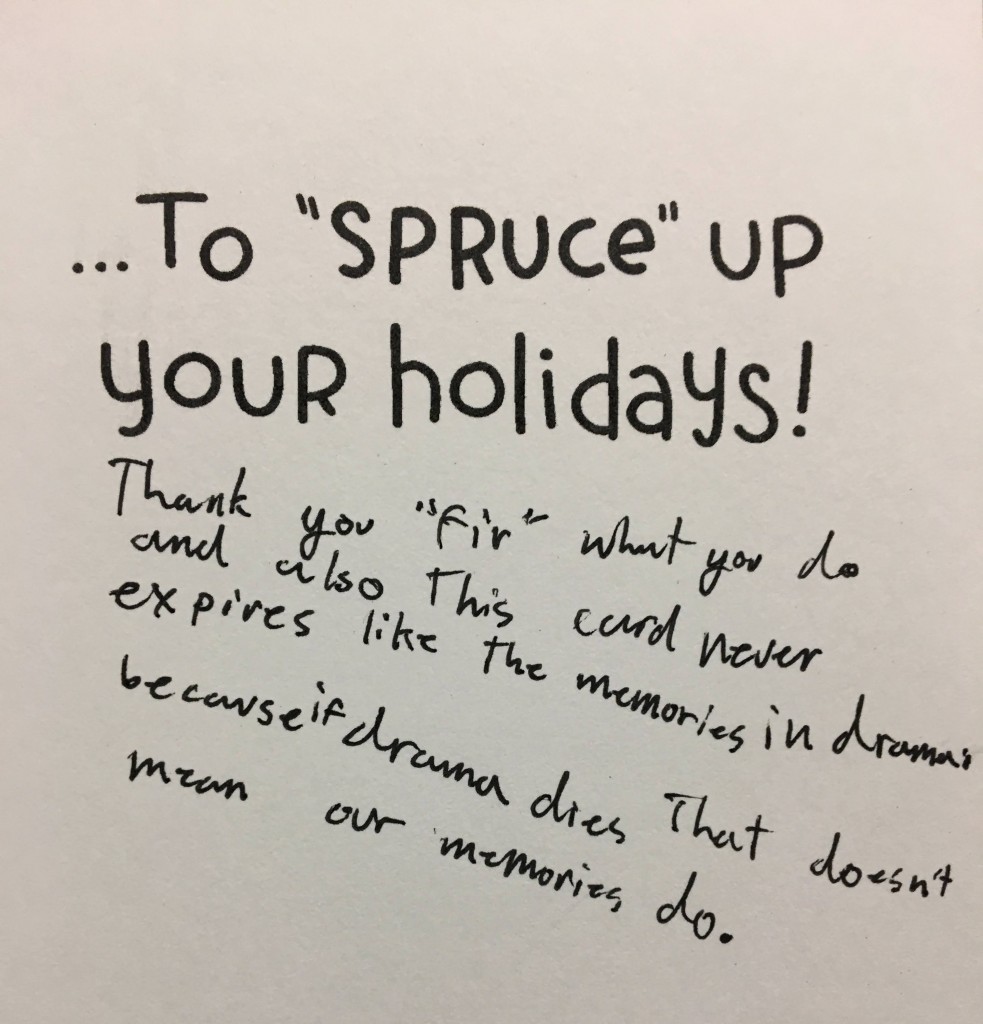 ...To "SPRUCE" UP
YOUR holidays!
Thank you "fir" what you do
and also This card never
expires like the memories in drama.
because if drama dies That doesn't
mean our memories do.